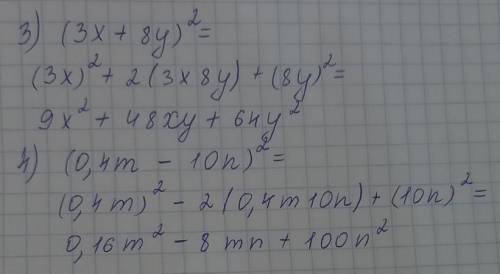 3) (3x + 8y)²=
(3x)² + 2(3x8y) + (8y)²=
9x² + 48xy + 64y²
4) (0,4m - 10n)²=
(0,4m)² - 2(0,4m10n) + (10n)²=
0,16m² - 8mn + 100n²